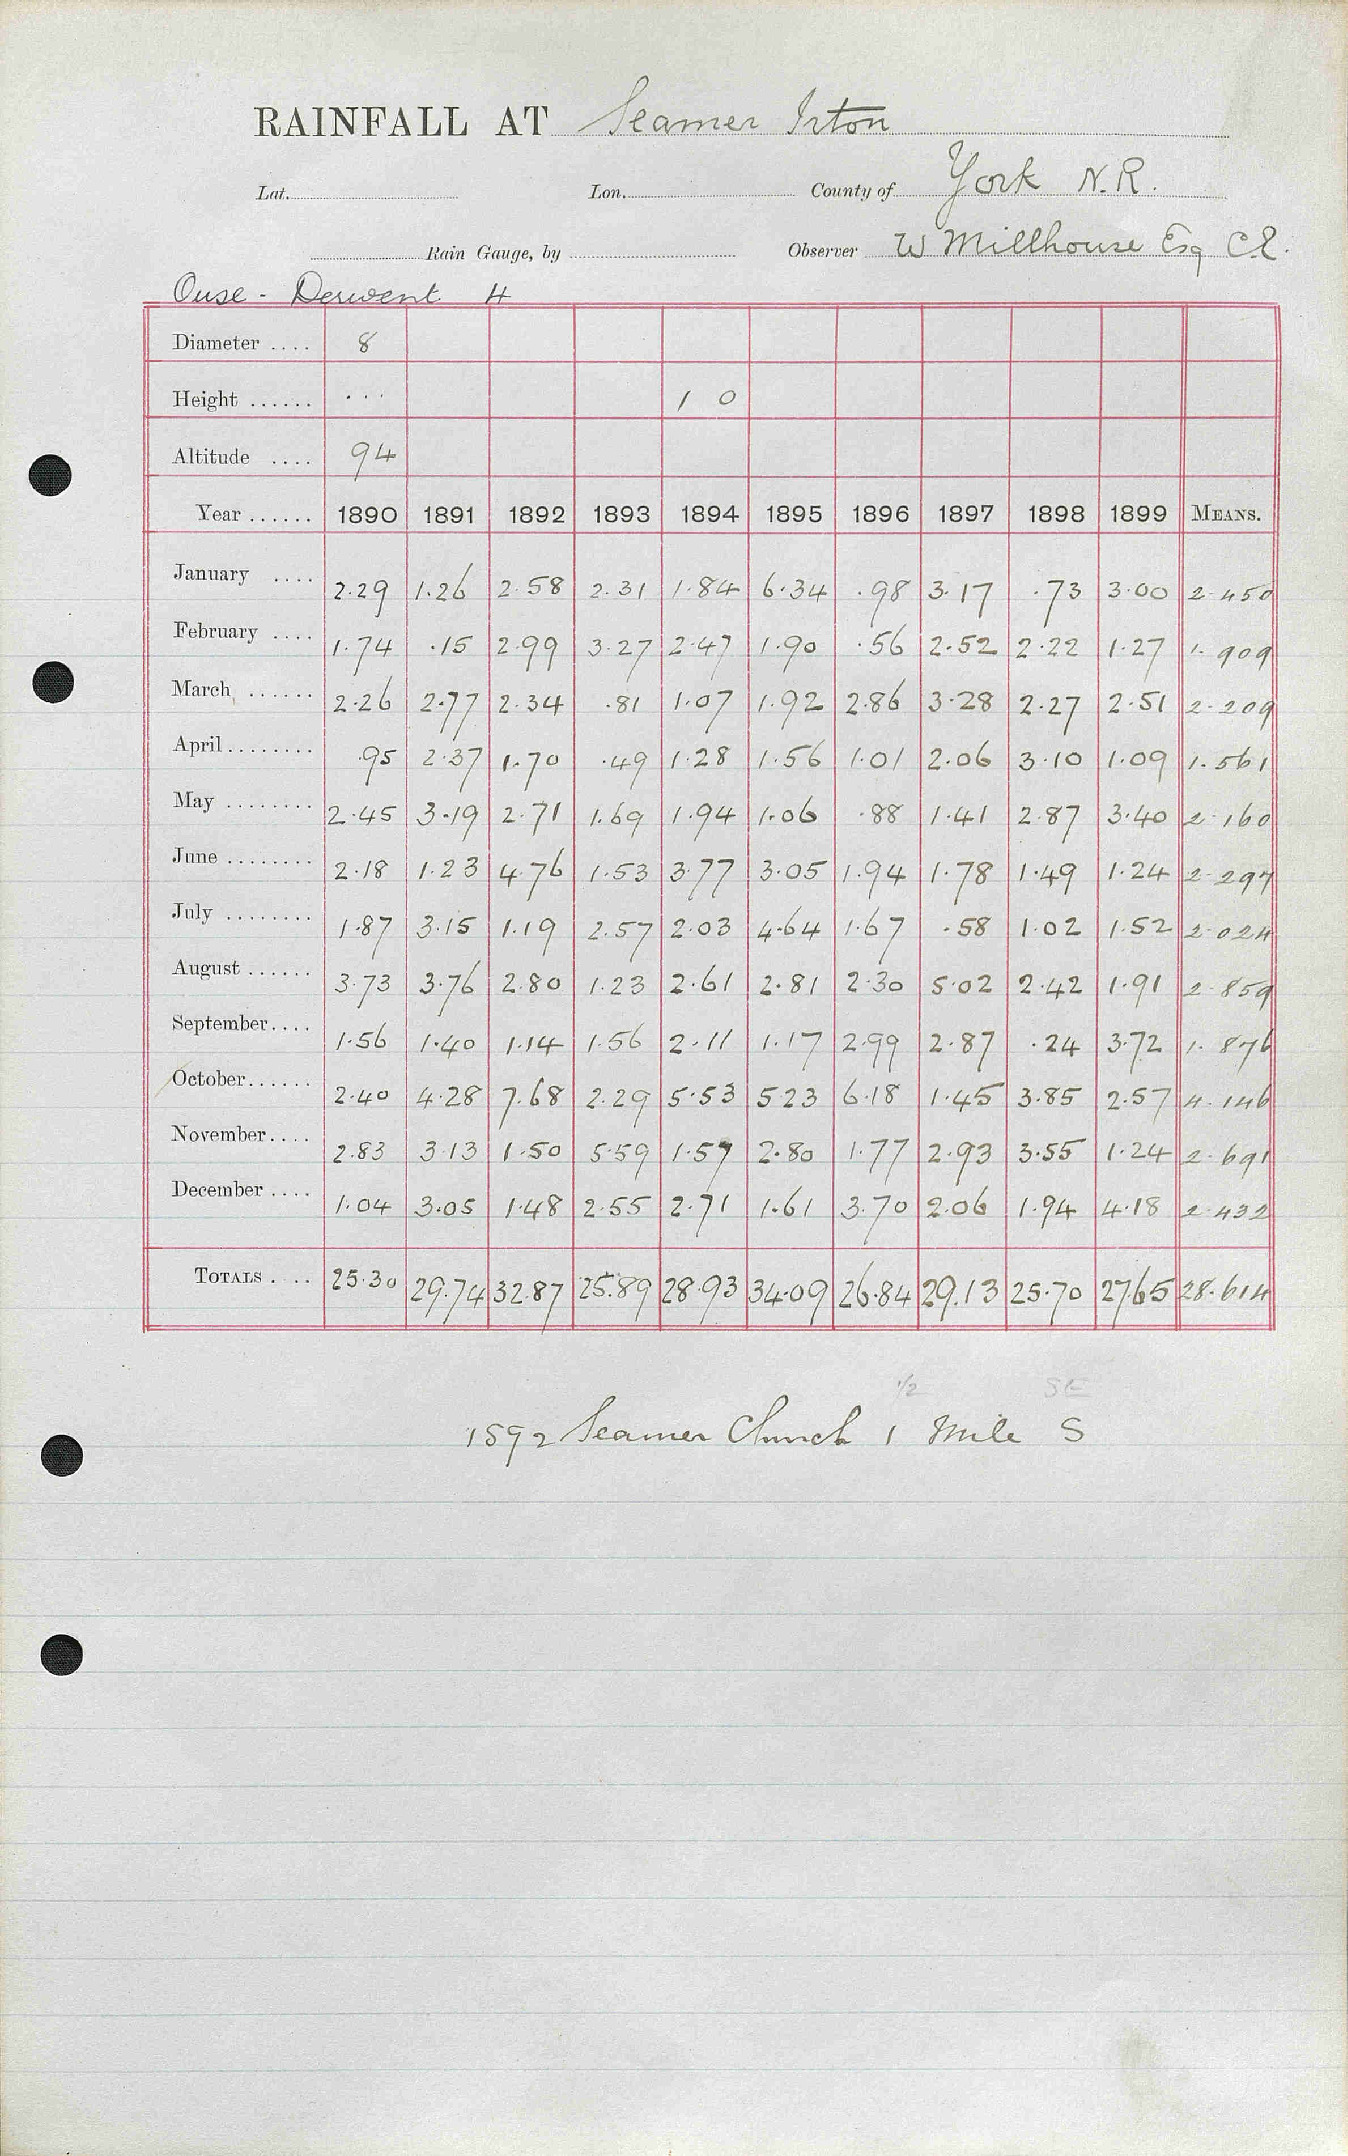 RAINFALL AT Seamer Irton
Lat. Lon. County of York N.R.
Rain Gauge, by Observer W Millhouse Esq C.E.
Ouse - Derwent 4
Diameter .... 8
Height ...... ... 1 0
Altitude .... 94
Year ...... 1890 1891 1892 1893 1894 1895 1896 1897 1898 1899 MEANS.
January .... 2.29 1.26 2.58 2.31 1.84 6.34 .98 3.17 .73 3.00 2.450
February .... 1.74 .15 2.99 3.27 2.47 1.90 .56 2.52 2.22 1.27 1.909
March ...... 2.26 2.77 2.34 .81 1.07 1.92 2.86 3.28 2.27 2.51 2.209
April ........ .95 2.37 1.70 .49 1.28 1.56 1.01 2.06 3.10 1.09 1.561
May ........ 2.45 3.19 2.71 1.69 1.94 1.06 .88 1.41 2.87 3.40 2.160
June ........ 2.18 1.23 4.76 1.53 3.77 3.05 1.94 1.78 1.49 1.24 2.297
July ........ 1.87 3.15 1.19 2.57 2.03 4.64 1.67 .58 1.02 1.52 2.024
August ...... 3.73 3.76 2.80 1.23 2.61 2.81 2.30 5.02 2.42 1.91 2.859
September .... 1.56 1.40 1.14 1.56 2.11 1.17 2.99 2.87 .24 3.72 1.876
October ...... 2.40 4.28 7.68 2.29 5.53 5.23 6.18 1.45 3.85 2.57 4.146
November .... 2.83 3.13 1.50 5.59 1.57 2.80 1.77 2.93 3.55 1.24 2.691
December .... 1.04 3.05 1.48 2.55 2.71 1.61 3.70 2.06 1.94 4.18 2.432
TOTALS .... 25.30 29.74 32.87 25.89 28.93 34.09 26.84 29.13 25.70 27.65 28.614
1/2 SE
1892 Seamer Church 1 Mile S